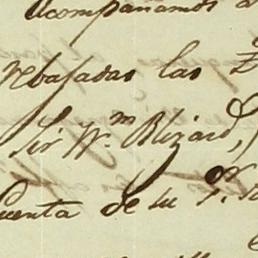 Acompañamos a
rebajadas las
Sir Wm Blizard,
Cuenta de su